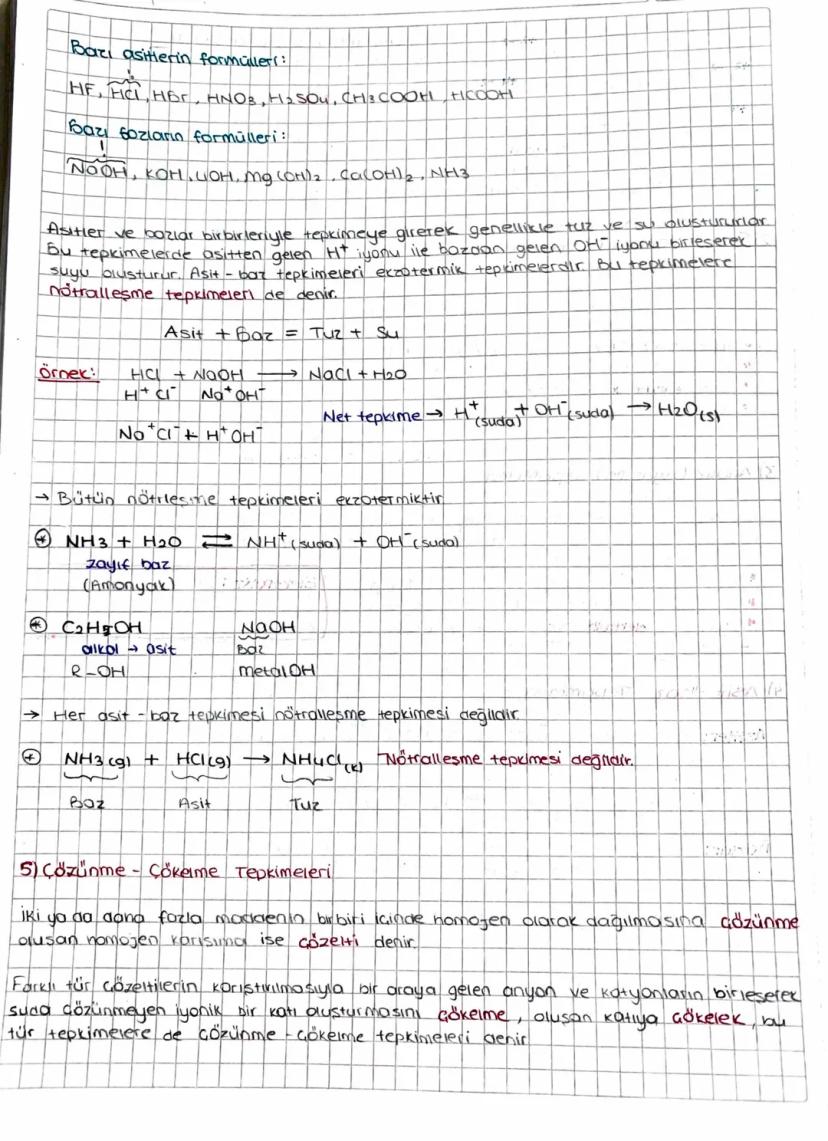 Bazı asitlerin formülleri:
HF, HCl, HBr, HNO3, H2SO4, CH3COOH, HCOOH
Bazı bazların formülleri:
NaOH, KOH, LiOH, Mg(OH)2, Ca(OH)2, NH3
Asitler ve bazlar birbirleriyle tepkimeye girerek genellikle tuz ve su oluştururlar
Bu tepkimelerde asitten gelen H+ iyonu ile bazdan gelen OH- iyonu birleşerek
suyu oluşturur. Asit - baz tepkimeleri ekzotermik tepkimelerdir. Bu tepkimelere
nötralleşme tepkimeleri de denir.
Asit + Baz = Tuz + Su
Örnek: HCl + NaOH → NaCl + H2O
H+ Cl- Na+ OH-
Net tepkime → H+(suda) + OH-(suda) → H2O(s)
Na+Cl- + H+OH-
→ Bütün nötrleşme tepkimeleri ekzotermiktir
* NH3 + H2O ⇌ NH+(suda) + OH-(suda)
zayıf baz
(Amonyak)
* C2H5OH NaOH
alkol → asit Baz
R-OH metalOH
→ Her asit - baz tepkimesi nötralleşme tepkimesi değildir.
* NH3(g) + HCl(g) → NH4Cl(k) Nötralleşme tepkimesi değildir.
Baz Asit Tuz
5) Çözünme - Çökelme Tepkimeleri
İki ya da daha fazla maddenin birbiri içinde homojen olarak dağılmasına çözünme
oluşan homojen karışıma ise çözelti denir.
Farklı tür çözeltilerin karıştırılmasıyla bir araya gelen anyon ve katyonların birleşerek
suda çözünmeyen iyonik bir katı oluşturmasını çökelme, oluşan katıya çökelek, bu
tür tepkimelere de çözünme - çökelme tepkimeleri denir